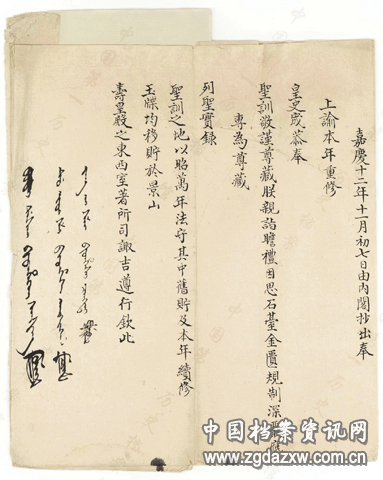 嘉慶十二年十二月初七日由内閣抄出奉
上諭本年重修
皇史宬恭奉
聖訓敬謹尊藏朕親詣瞻禮因思石室金匱規制深嚴應
專為尊藏
列聖實錄
聖訓之地以昭萬年法守其中舊貯及本年續修
玉牒均移貯於景山
壽皇殿之東西室著所司諏吉遵行欽此
中国档案资讯网
www.zgdazxw.com.cn